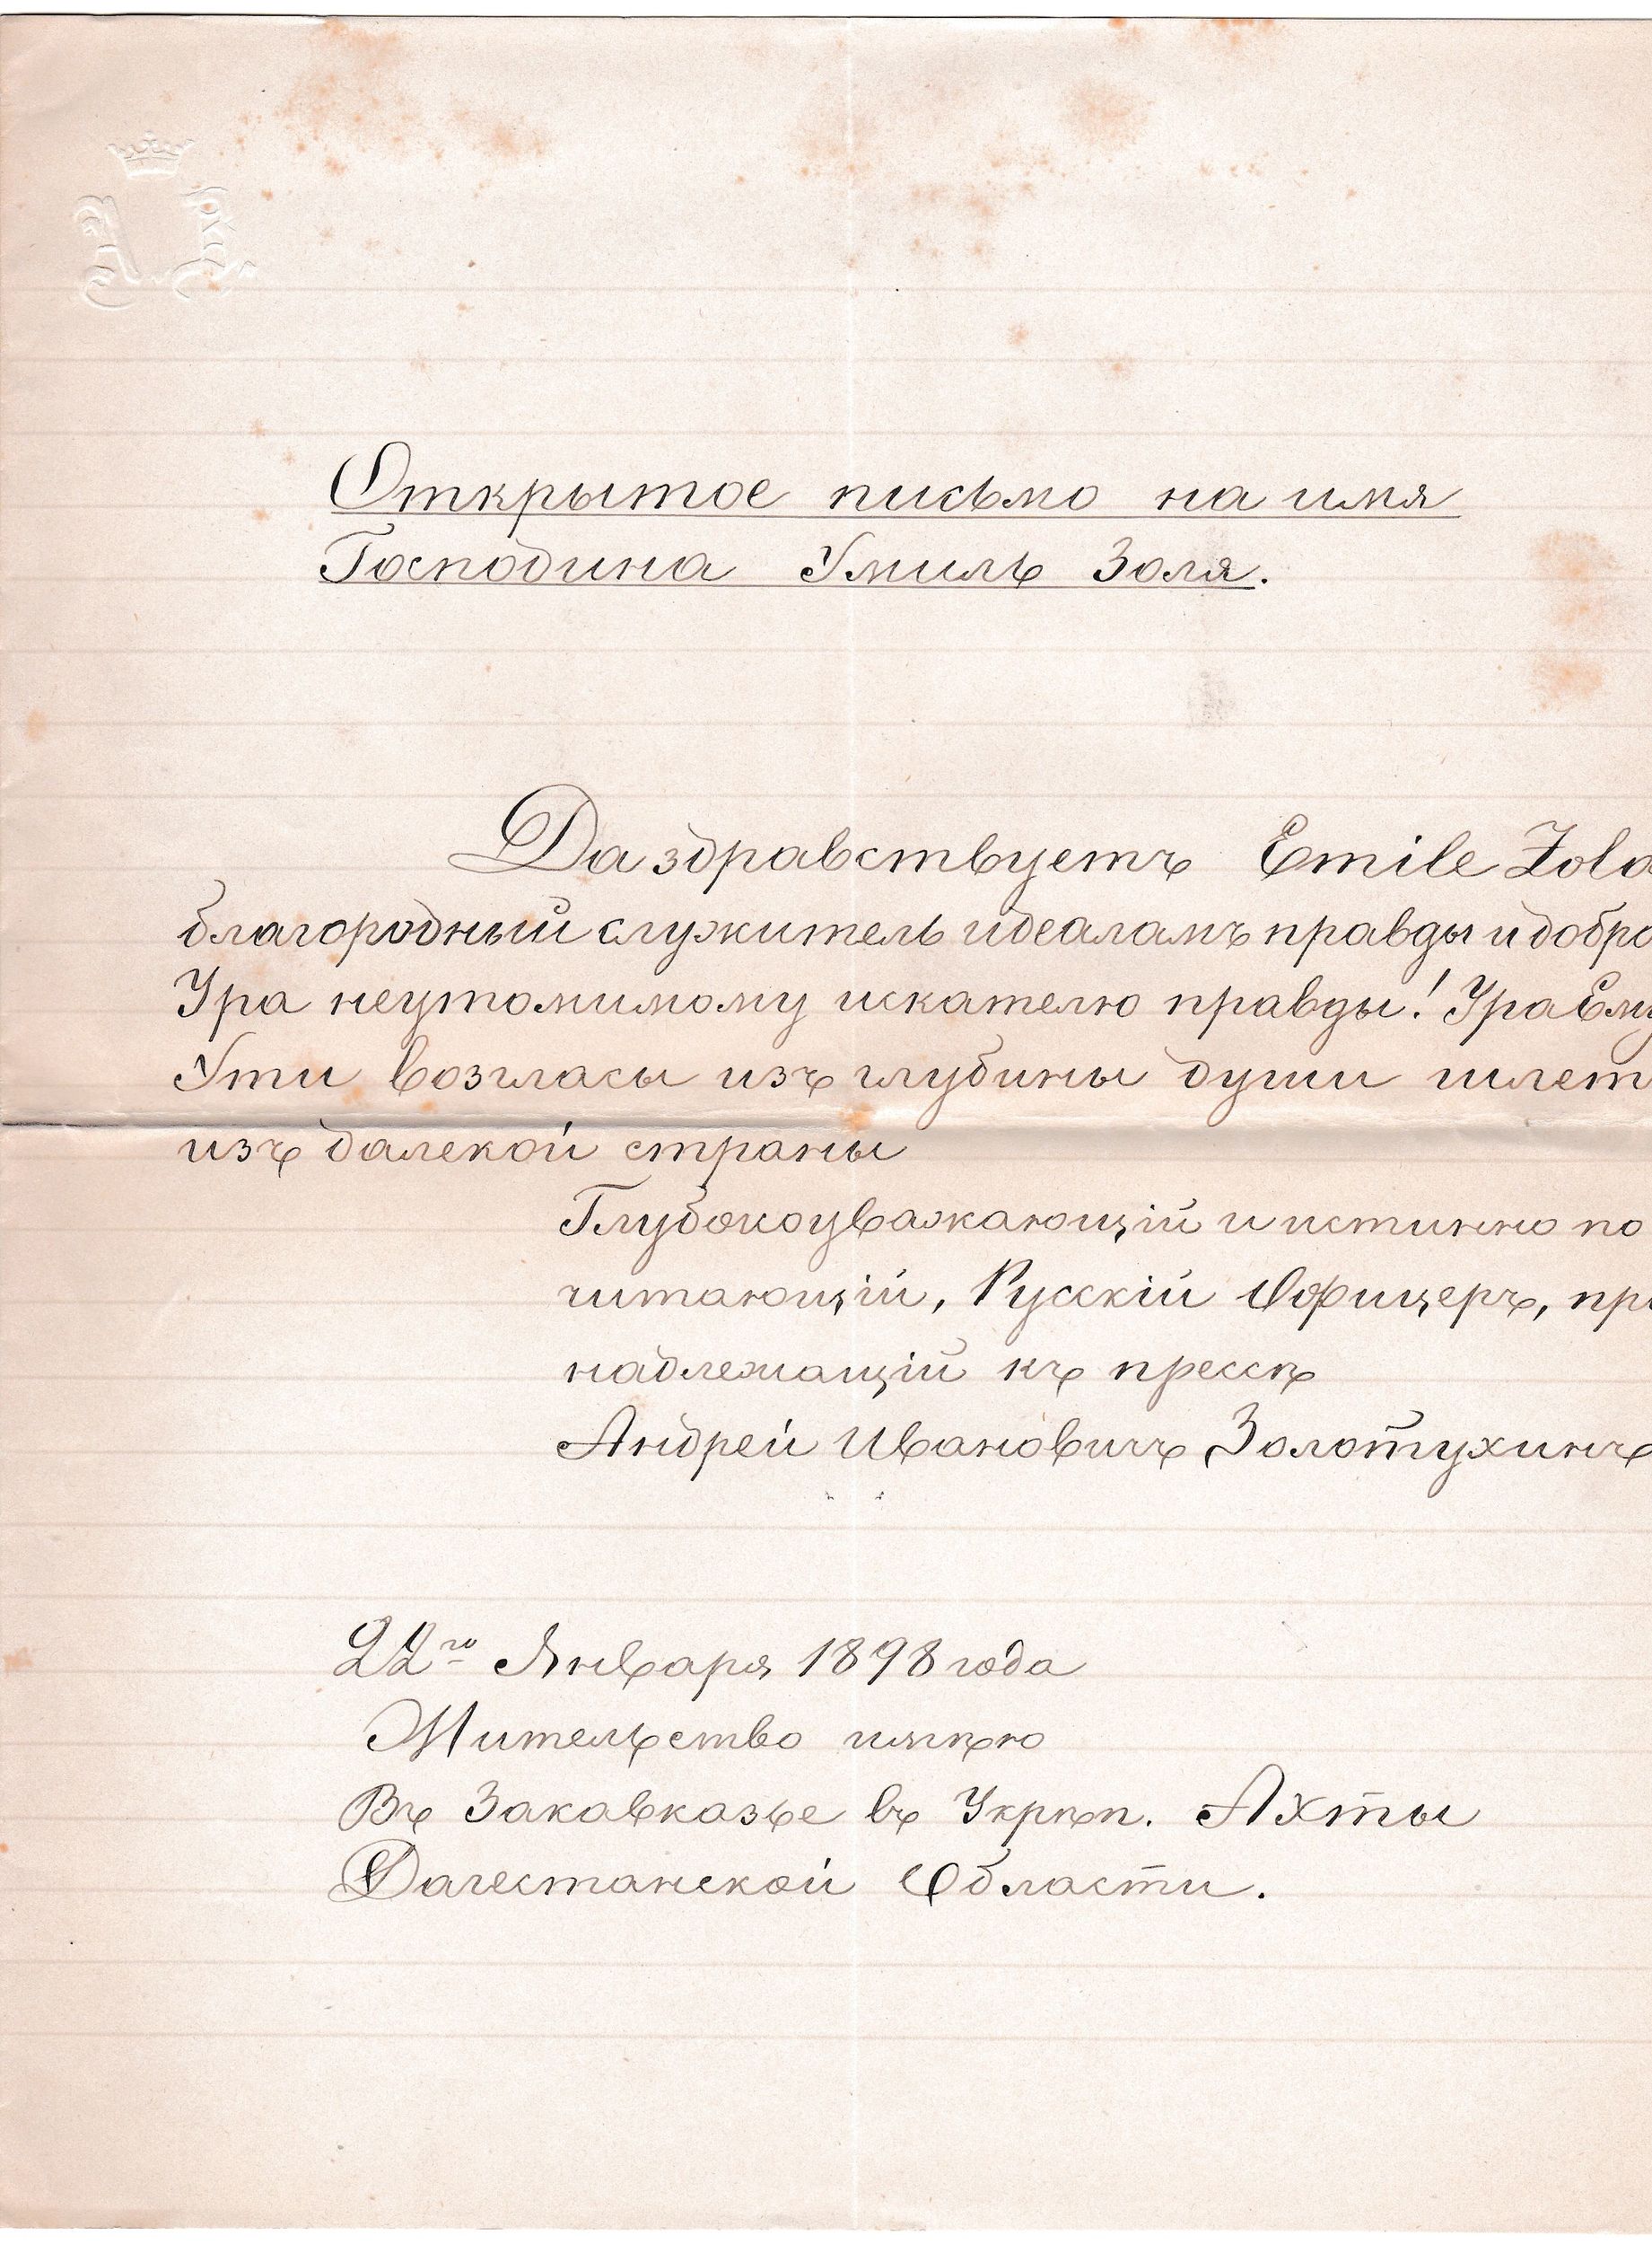 Открытое письмо на имя
Господина Эмиль Золя.
Да здравствуетъ Emile Zola
благородный служитель идеаламъ правды и добра
Ура неутомимому искателю правды! Ура Ему
Эти возгласы изъ глубины души шлет
изъ далекой страны
Глубокоуважающій и истинно по
читающій, Русскій Офицеръ, при
надлежащій къ прессѣ
Андрей Ивановичъ Золотухинъ
22го Января 1898 года
Жительство имѣю
Въ Закавказье въ Укрѣп. Ахты
Дагестанской Области.